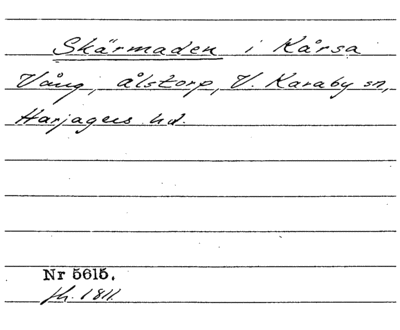 Skärmaden i Kårsa
Vång, ålstorp, V. Karaby sn,
Harjagers hd.
Nr 5615.
fh. 1811